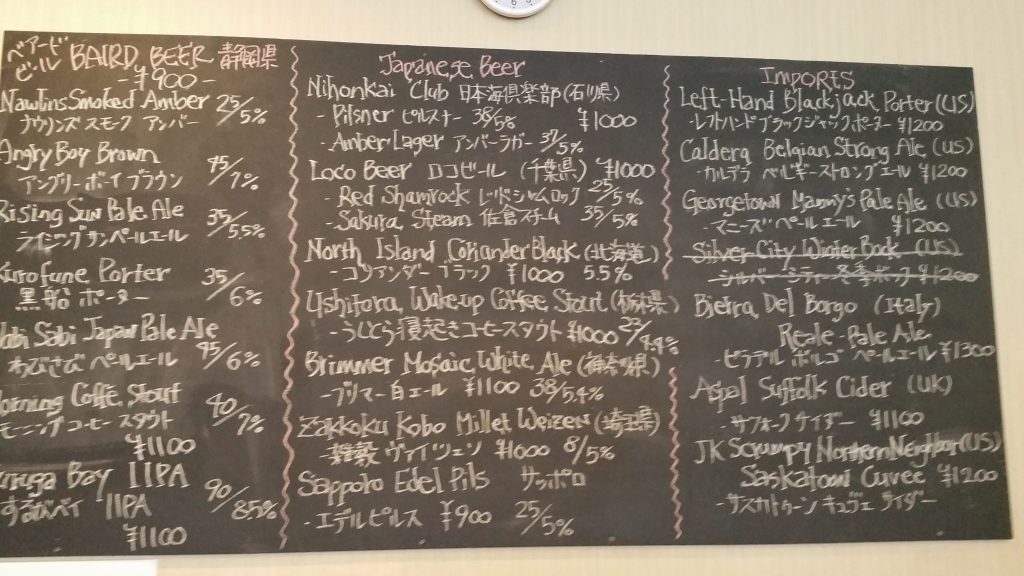 ベアード
ビール BAIRD BEER 静岡県
- ¥900 -
Nawlins Smoked Amber 25/5%
ナウリンズ スモーク アンバー
Angry Boy Brown 45/7%
アングリーボーイブラウン
Rising Sun Pale Ale 35/5.5%
ライジングサンペールエール
Kurofune Porter 35/6%
黒船 ポーター
Wabi Sabi Japan Pale Ale
わびさび ペールエール 45/6%
Morning Coffe Stout 40/7%
モーニングコーヒースタウト
¥1100
Suruga Bay IIPA 90/8.5%
するがベイ IIPA
¥1100
Japanese Beer
Nihonkai Club 日本海倶楽部 (石川県)
- Pilsner ピルスナー 38/5% ¥1000
- Amber Lager アンバーラガー 37/5%
Loco Beer ロコビール (千葉県) ¥1000
- Red Shamrock レッドシャムロック 25/5%
- Sakura Steam 佐倉スチーム 35/5%
North Island Coriander Black (北海道)
- コリアンダーブラック ¥1000 5.5%
Ushitora Wake-up Coffee Stout (栃木県)
- うしとら寝起きコーヒースタウト ¥1000
Brimmer Mosaic White Ale (神奈川県)
- ブリマー白エール ¥1100 38/5.4%
Zakkoku Kobo Millet Weizen (埼玉県)
- 雑穀 ヴァイツェン ¥1000 8/5%
Sapporo Edel Pils サッポロ
- エデルピルス ¥900 25/5%
Imports
Left-Hand Blackjack Porter (US)
- レフトハンドブラックジャックポーター ¥1200
Caldera Belgian Strong Ale (US)
- カルデラ ベルギーストロングエール ¥1200
Georgetown Manny's Pale Ale (US)
- マニーズペールエール ¥1200
Silver City Winter Bock (US)
- シルバーシティー冬季ボック ¥1200
Bietra Del Borgo (Italy)
Reale Pale Ale
- ビラデル ボルゴ ペールエール ¥1300
Aspal Suffolk Cider (UK)
- サフォークサイダー ¥1100
JK Scrumpy Northern Neighbor (US)
Saskatown Cuvee ¥1200
- サスカトゥーン キュヴェ サイダー